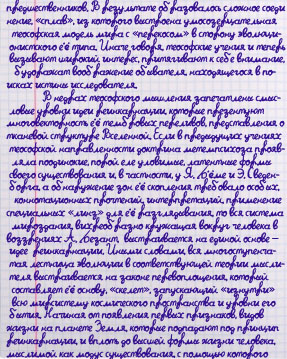 предшественников. В результате образовалось сложное соеди-
нение, «сплав», из которого выстроена умозрительная
теософская модель мира с «перекосом» в сторону эволюци-
онистского её типа. Иначе говоря, теософские учения и теперь
вызывают широкий интерес, притягивают к себе внимание,
будоражат воображение обывателя, находящегося в по-
исках истины исследователя.
В недрах теософского мышления запечатлены смыс-
ловые уровни идеи реинкарнации, которые презентуют
многовекторность её тембровых переливов, представления о
тканевой структуре Вселенной. Если в предыдущих учениях
теософской направленности доктрина метемпсихоза прояв-
ляла подчиненные, порой еле уловимые, латентные формы
своего существования и, в частности, у Я. Бёме и Э. Сведен-
борга, а обнаружение зон её скопления требовало особых,
коннотационных прочтений, интерпретаций, применение
специальных «линз» для её разглядывания, то вся система
мироздания, вихреобразно кружащая вокруг человека в
воззрениях А. Безант, выстраивается на единой основе –
идее реинкарнации. Иными словами, вся многоступенча-
тая лестница эволюции в соответствующей теории мысли-
теля выстраивается на законе перевоплощения, который
составляет её основу, «скелет», запускающий «изнутри»
всю мирсистему космического пространства и уровни его
бытия. Начиная от появления первых признаков, видов
жизни на планете Земля, которые попадают под принцип
реинкарнации, и вплоть до высшей формы жизни человека,
мыслимой как модус существования, с помощью которого